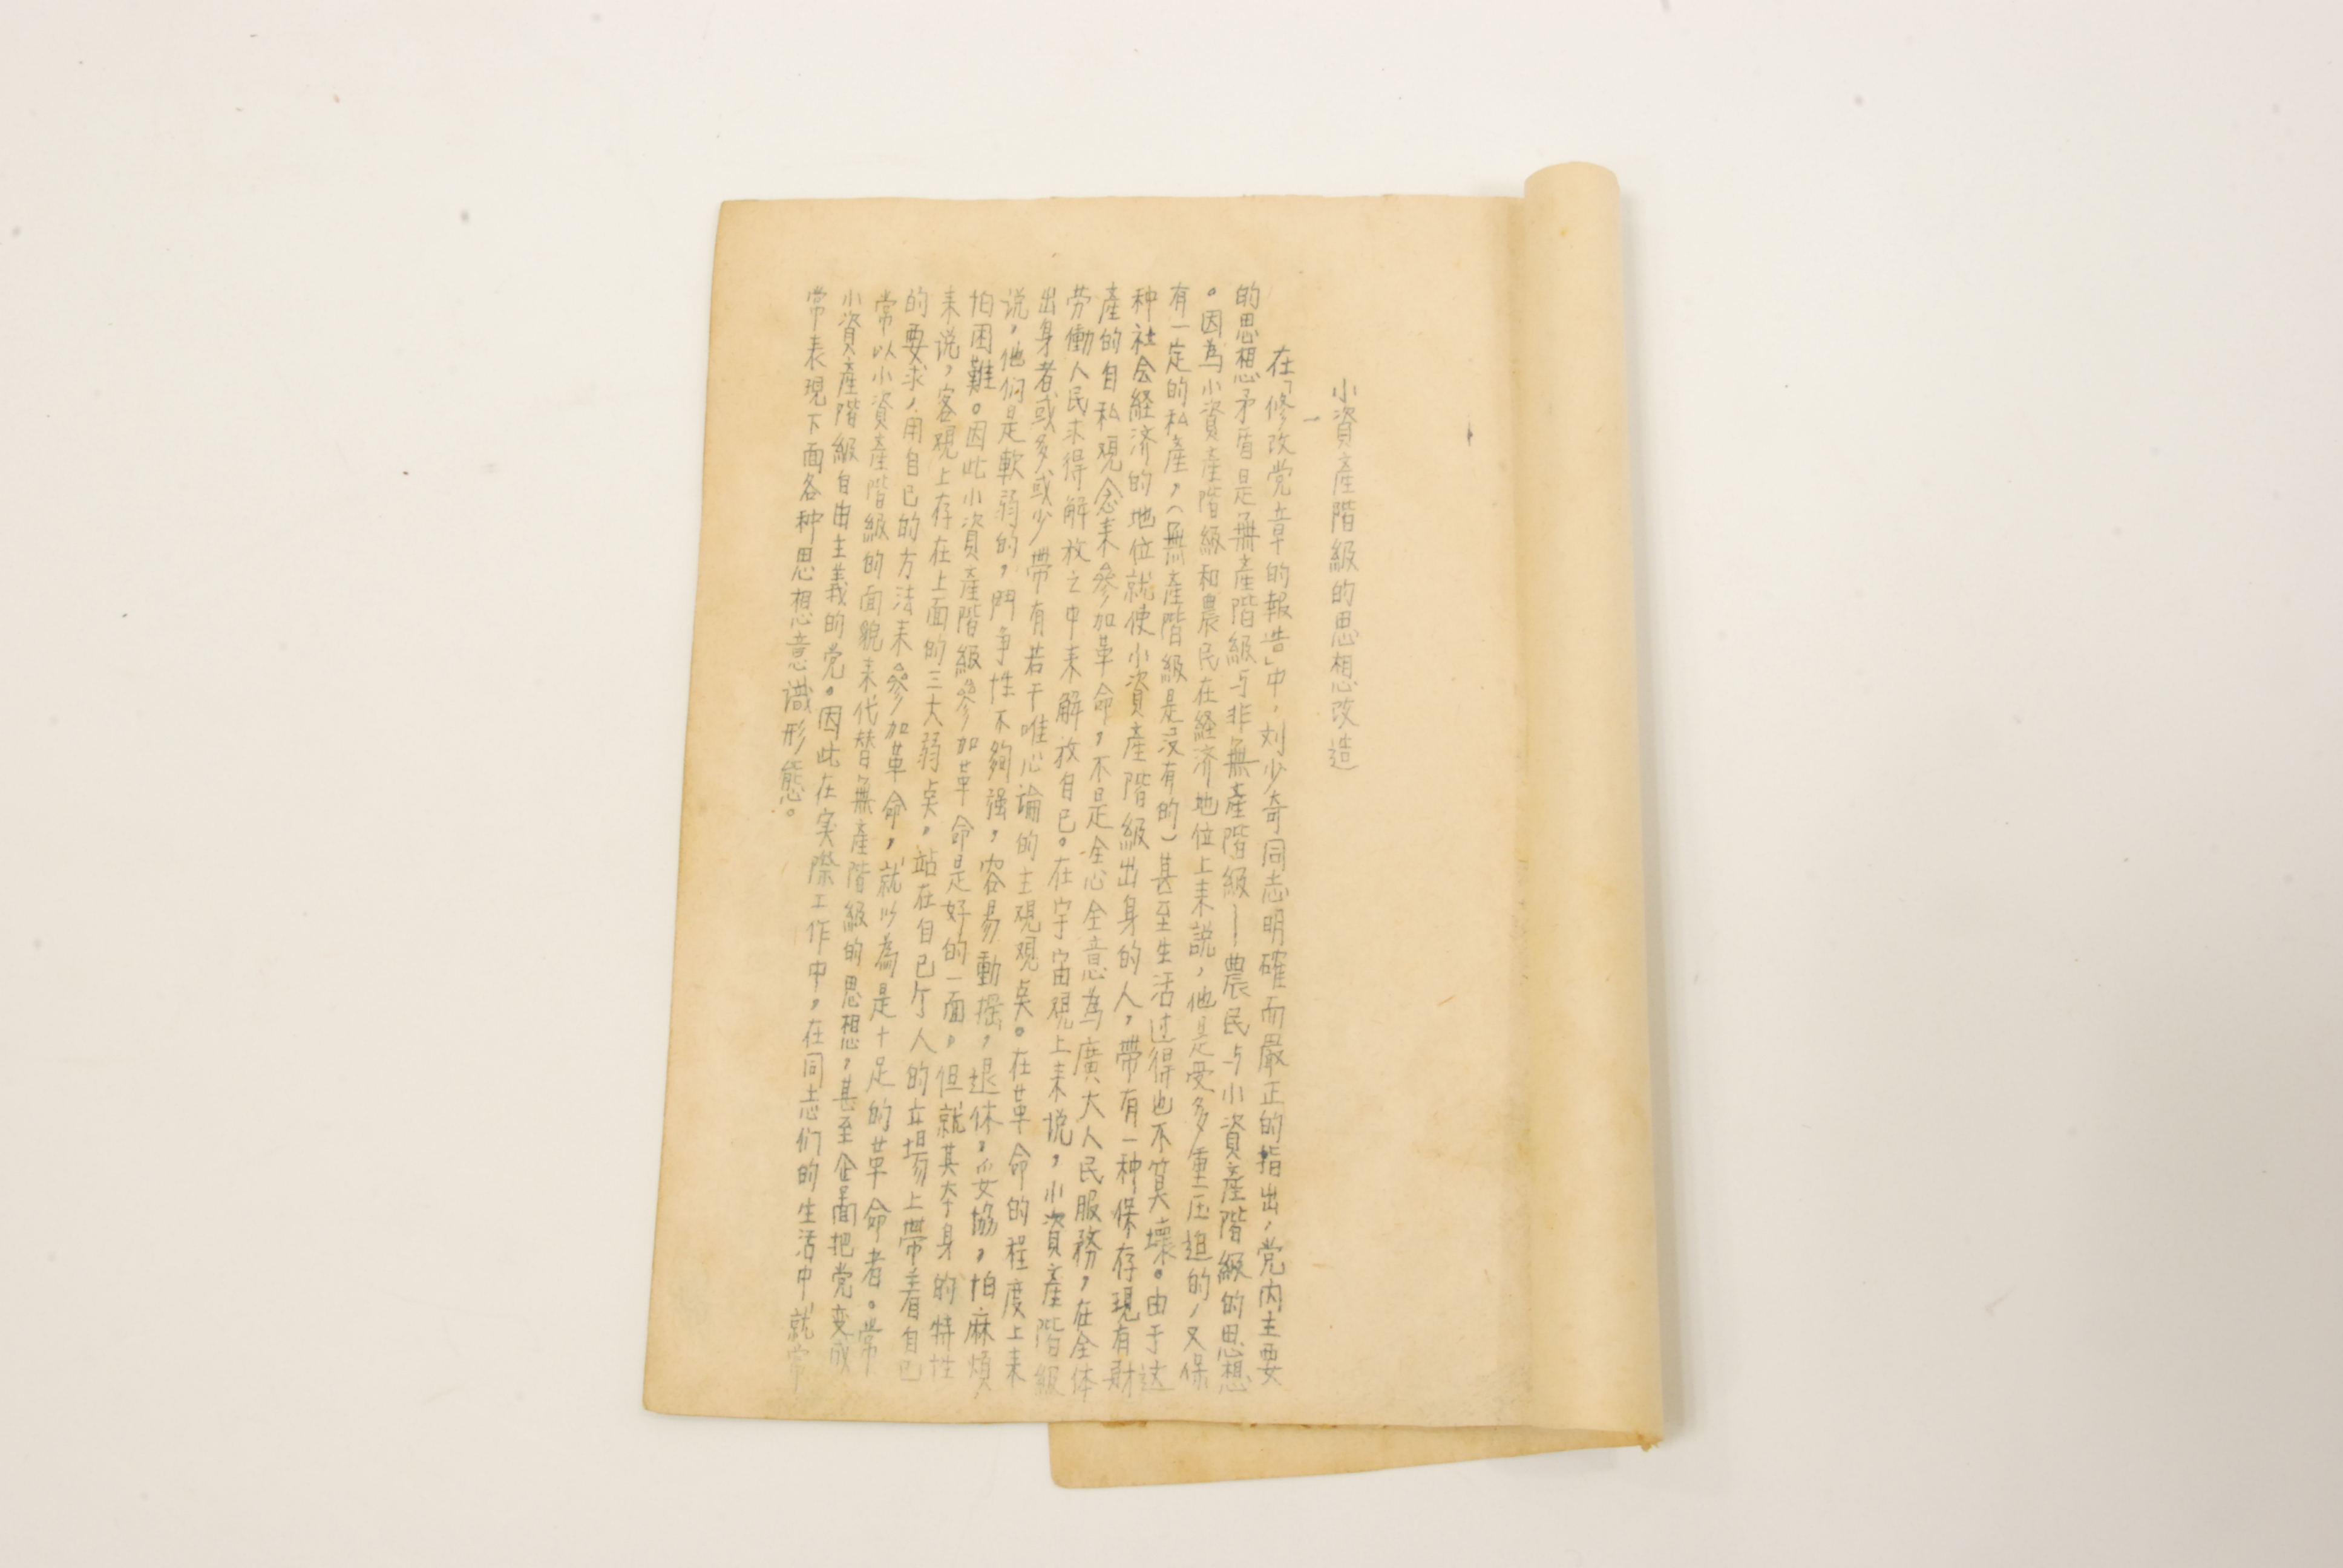 小資產階級的思想改造
一
在「修改党章的報告」中，刘少奇同志明確而嚴正的指出，党内主要
的思想矛盾是無產階級与非無產階級——農民与小資產階級的思想
。因為小資產階級和農民在経済地位上来説，他是受多重压迫的，又保
有一定的私產，（無產階級是没有的）甚至生活过得也不算壞。由于这
种社会経済的地位就使小資產階級出身的人，帶有一种保存現有財
產的自私观念来參加革命，不是全心全意為廣大人民服務，在全体
劳働人民求得解放之中来解放自己。在宇宙观上来说，小資產階級
出身者或多或少帶有若干唯心論的主观观奌。在革命的程度上来
说，他们是軟弱的，鬥争性不夠强，容易動摇，退休，妥協，怕麻煩
怕困難。因此小資產階級參加革命是好的一面，但就其本身的特性
来说，客观上存在上面的三大弱奌，站在自己个人的立場上帶着自己
的要求，用自己的方法来參加革命，就以為是十足的革命者。常
常以小資產階級的面貌来代替無產階級的思想，甚至企图把党变成
小資產階級自由主義的党。因此在实際工作中，在同志们的生活中就常
常表現下面各种思想意識形態。